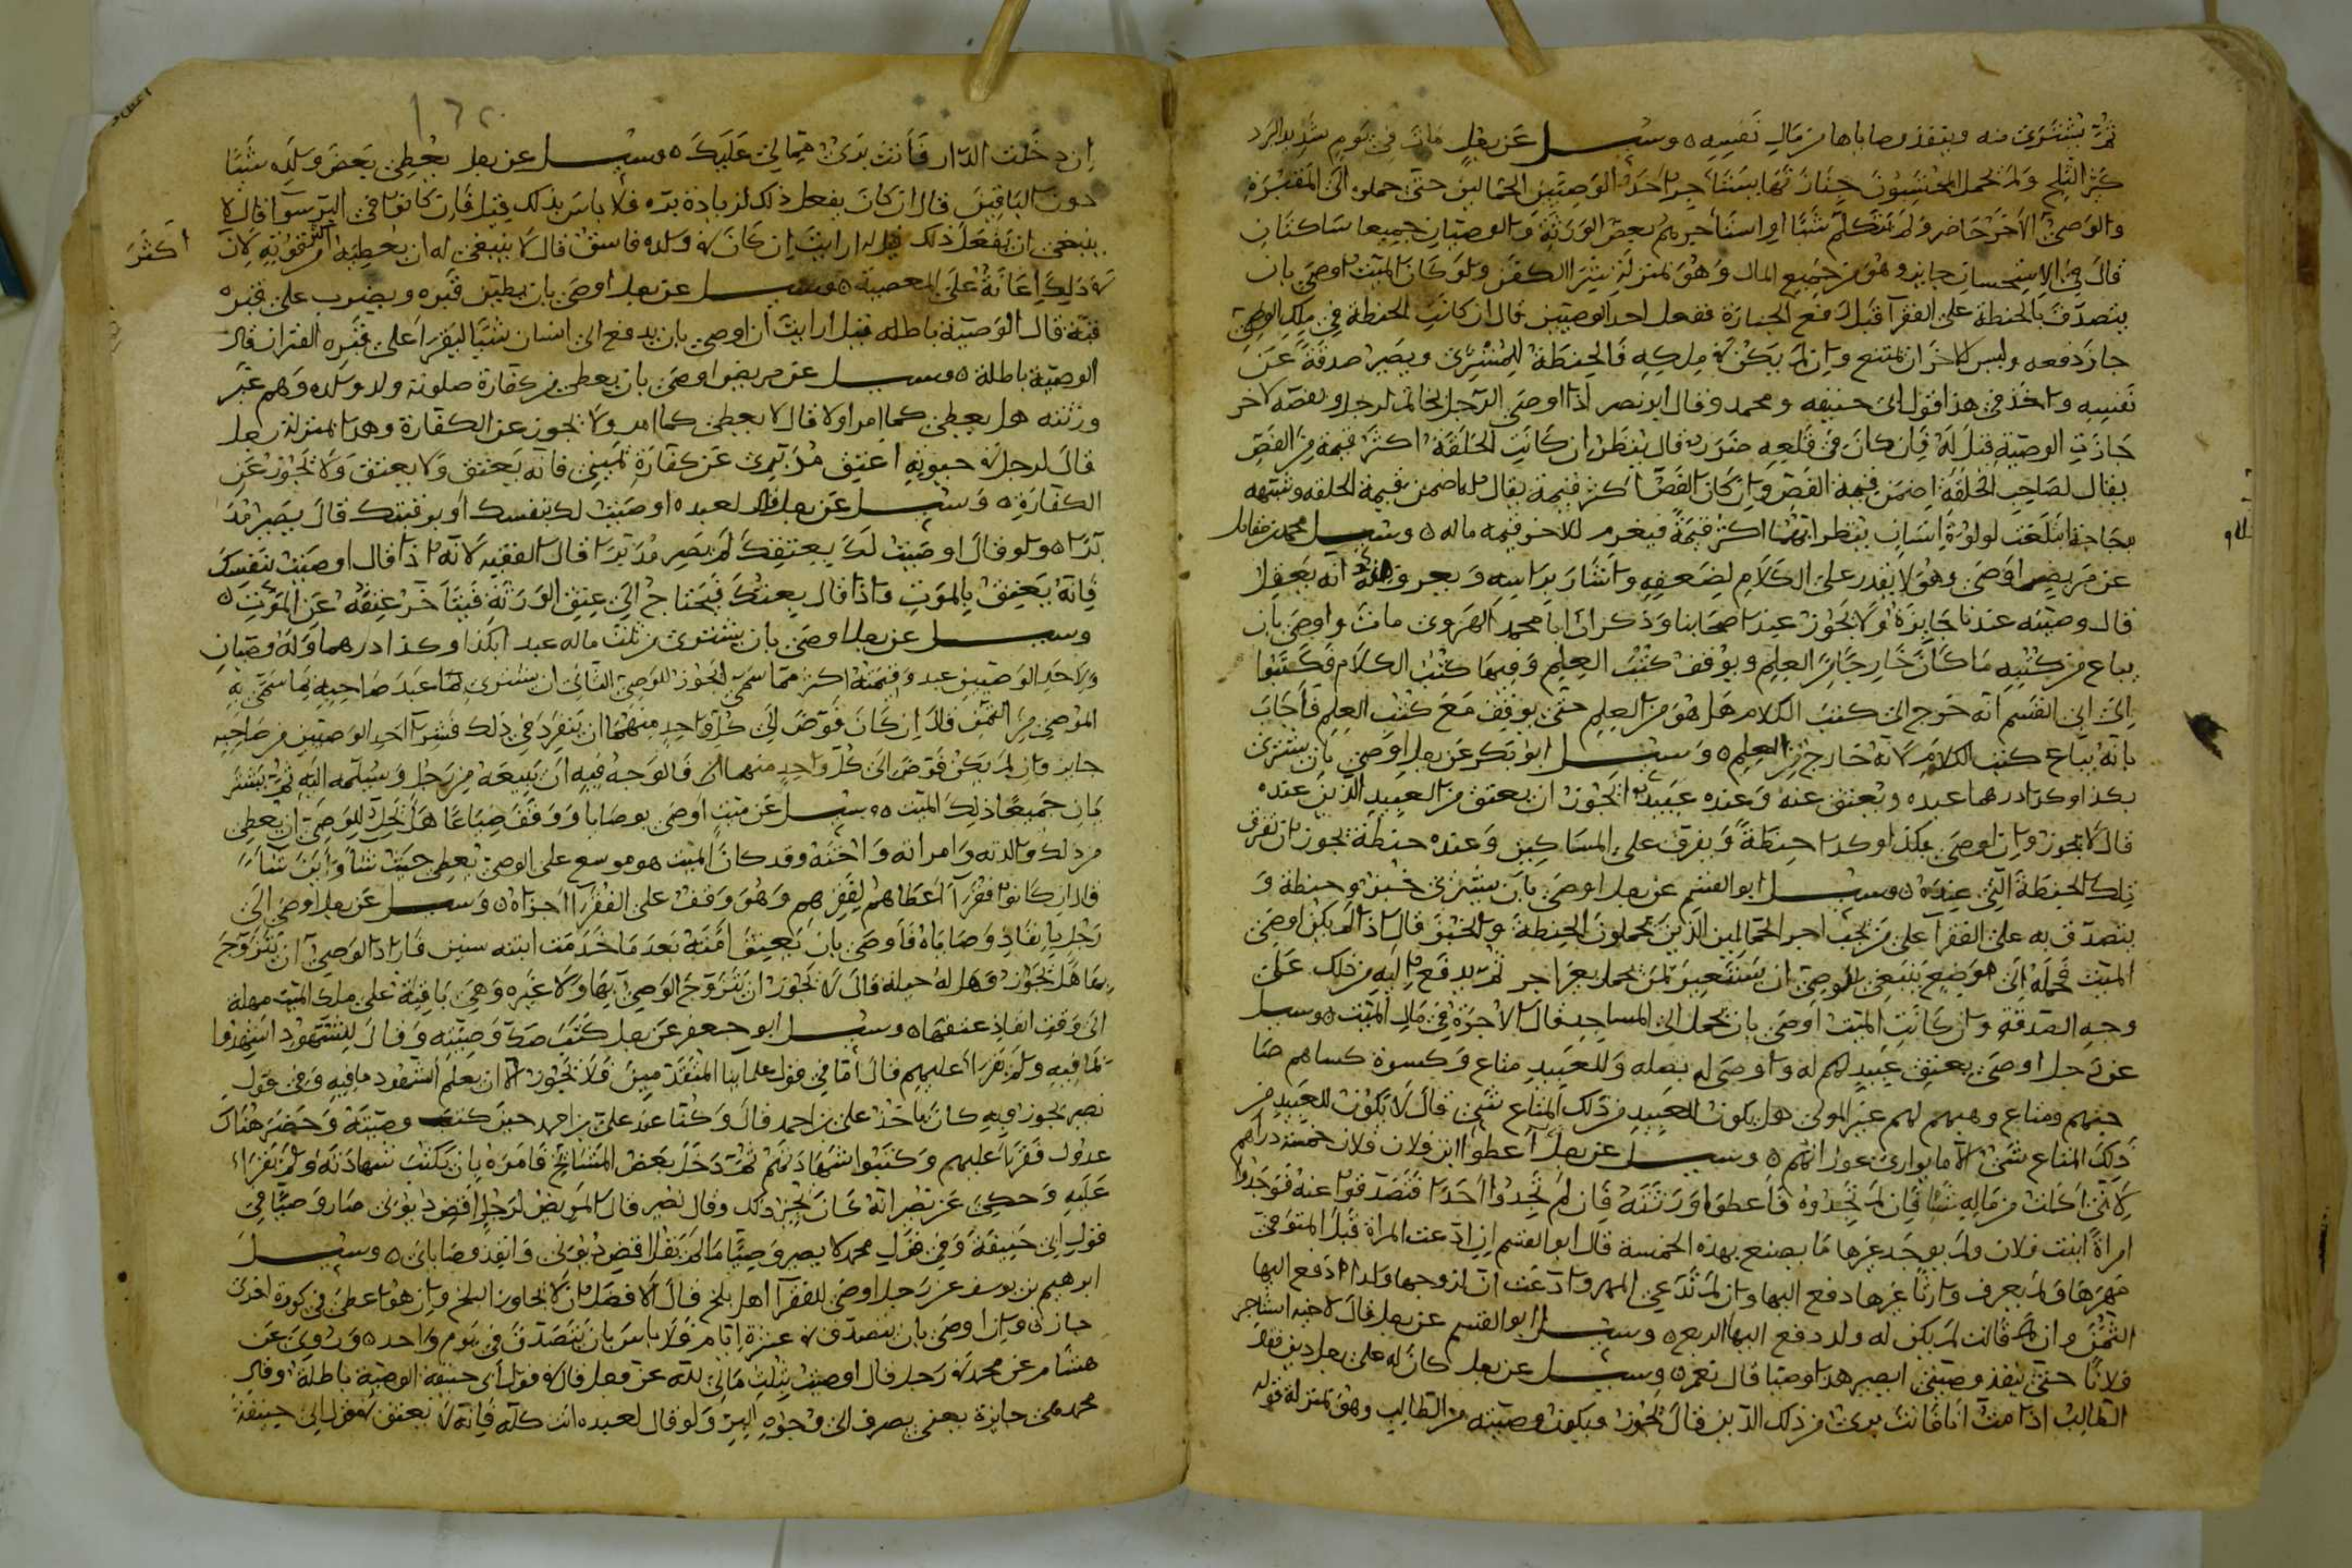 ثم يشترى منه وينفذ وصاياها من مال نفسه ٥ وسئل عن رجل مات في يوم شديد البرد
كثير الثلج ولم يحمل المحتسبون جنازتها يستأجر احد الوصيين الحمالين حتى حملوه الى المقبرة
والوصي الآخر حاضر ولم يتكلم شيئا او استأجرهم بعض الورثة والوصيان جميعا ساكتان
قال في الاستحسان جايز وهو من جميع المال وهو بمنزلة شرا الكفن ولو كان الميت اوصى بان
يتصدق بالحنطة على الفقرآ قبل رفع الجنازة ففعل احد الوصيين قال ان كانت الحنطة في ملك الموصي
جاز دفعه وليس للآخر ان يمتنع وان لم يكن في ملكه فالحنطة للمشترى ويصير صدقة عن
نفسه واخذ في هذا قول ابى حنيفه ومحمد وقال ابو نصر اذا اوصى الرجل بخاتم لرجل وبفصه لآخر
جازت الوصية قيل له فان كان في قلعه ضرر قال ينظر ان كانت الحلقة اكثر قيمة من الفص
يقال لصاحب الحلقة اضمن قيمة الفص وان كان الفص اكثر قيمة يقال له اضمن قيمة الحلقه وشبهه
دجاجة ابتلعت لولوة انسان ينظر ايهما اكثر قيمة فيغرم للاخر قيمه ماله ٥ وسئل محمد بن مقاتل
عن مريض اوصى وهو لا يقدر على الكلام لضعفه واشار براسه ويعرف انه يعقل
قال وصيته عندنا جايزة ولا يجوز عند اصحابنا وذكر ان ابا محمد الهروى مات واوصى بان
يباع من كتبه ما كان خارجا من العلم ويوقف كتب العلم وفيها كتب الكلام فكتبوا
الى ابى القسم انه خرج الى كتب الكلام هل هو من العلم حتى يوقف مع كتب العلم فأجاب
بانه يباع كتب الكلام لانه خارج من العلم ٥ وسئل ابو بكر عن رجل اوصي بان يشترى
بكذا وكذا درهما عبده ويعتق عنه وعنده عبيد ايجوز ان يعتق من العبيد الذين عنده
قال لا يجوز وان اوصى بكذا وكذا حنطة ويفرق على المساكين وعنده حنطة يجوز ان تفرق
تلك الحنطة التي عنده ٥ وسئل ابو القسم عن رجل اوصى بان يشترى خبز وحنطة و
يتصدق به على الفقرآ على من يجب اجر الحمالين الذين يحملون الحنطة والخبز قال اذا لم يكن اوصى
الميت بحمله الى موضع ينبغي للوصي ان يستعين بمن يحمل بغير اجر ثم يدفع اليه من ذلك على
وجه الصدقة وان كانت الميت اوصى بان يحمل الى المساجد قال الاجرة في مال الميت ٥ وسئل
عن رجل اوصى بعتق عبيد لهم له واوصى لهم بصله وللعبيد متاع وكسوة كساهم صا
حبهم ومتاع وهبهم لهم غير المولى هل يكون للعبيد من ذلك المتاع شئ قال لا يكون للعبيد من
ذلك المتاع شئ الا ما يوارى عوراتهم ٥ وسئل عن رجل اعطوا ابن فلان فلان خمسة دراهم
لانى اكلت من ماله شيئا فان لم تجدوه فأعطوا ورثته فان لم تجدوا احدا فتصدقوا عنه فوجدوا
امراة ابنت فلان ولم يوجد غيرها ما يصنع بهذه الخمسة قال ابو القسم ان ادعت المراة قبل المتوفى
مهرها ولم يعرف وارثا غيرها دفع اليها وان لم تدعى المهر وادعت ان لزوجها ولدا دفع اليها
الثمن وان قالت لم يكن له ولد دفع اليها الربع ٥ وسئل ابو القسم عن رجل قال لاخيه استاجر
فلانا حتى ينفذ وصيتي ايصير هذا وصيا قال نعم ٥ وسئل عن رجل كان له على رجل دين فقال
الطالب اذا مت انا فانت برئ من ذلك الدين قال يجوز ويكون وصيته من الطالب وهو بمنزلة قوله
ان دخلت الدار فأنت بدئ مما لي عليك ٥ وسئل عن رجل يعطي بعض ولده شيئا
دون الباقين قال ان كان يفعل ذلك لزيادة بره فلا بأس بذلك قيل فان كانوا في البر سوآ قال لا
ينبغي ان يفعل ذلك قيل له ارايت ان كان في ولده فاسق قال لا ينبغي له ان يعطيه اكثر من قوته لان
في ذلك اعانة على المعصية ٥ وسئل عن رجل اوصى بان يطين قبره ويضرب على قبره
قبة قال الوصية باطله قيل ارايت ان اوصى بان يدفع الى انسان شيئا ليقرا على قبره القران قال
الوصية باطلة ٥ وسئل عن مريض اوصى بان يعطى من كفارة صلوته ولد ولده وهم غير
ورثته هل يعطى كما امر اولا قال لا يعطى كما امر ولا يجوز عن الكفارة وهذا بمنزلة رجل
قال لرجل في حيوته اعتق مدبرى عن كفارة يميني فانه يعتق ولا يعتق ولا يجوز عن
الكفارة ٥ وسئل عن رجل قال لعبده اوصيت لك بنفسك او برقبتك قال يصير مد
برا ٥ ولو قال اوصيت لك بعتقك لم يصر مدبرا قال الفقيه لانه اذا قال اوصيت بنفسك
فانه يعتق بالموت واذا قال بعتقك فيحتاج الى عتق الورثة فيتأخر عتقه عن الموت ٥
وسئل عن رجل اوصى بان يشترى من ثلث ماله عبد بكذا وكذا درهما وله وصيان
ولاحد الوصيين عبد وقيمته اكثر مما سمى ايجوز للوصي الثاني ان يشترى لهما عبد صاحبه بما سمى به
الموصي من الثمن قال ان كان فوض الى كل واحد منهما ان ينفرد في ذلك فشرا احد الوصيين من صاحبه
جايز وان لم يكن فوض الى كل واحد منهما فالوجه فيه ان يبيعه من رجل ويسلمه اليه ثم يشتر
يان جميعا ذلك الميت ٥ وسئل عن ميت اوصى بوصايا ووقف ضياعا هل يحل للوصي ان يعطي
من ذلك والدته وامراته واخته وقد كان الميت هو موسع على الوصي يعطي حيث شاء واين شاء
قال ان كانوا فقرآ اعطاهم لفقرهم وهو وقف على الفقرآ اجزاه ٥ وسئل عن رجل اوصى الى
رجل بانفاذ وصاياه فأوصى بان يعتق امته بعد ما خدمت ابنته سنين فاراد الوصي ان يتزوج
بها هل يجوز وهل له حيلة قال لا يجوز ان يتزوج الوصي بها ولا غيره وهي باقية على ملك الميت مهلة
الى وقت انفاذ عتقها ٥ وسئل ابو جعفر عن رجل كتب صك وصيته وقال للشهود اشهدوا
بما فيه ولم يقرا عليهم قال اما في قول علمائنا المتقدمين فلا يجوز الا ان يعلم الشهود ما فيه وفى قول
نصير يجوز وبه كان يأخذ على بن احمد قال وكنا عند على بن احمد حين كتب وصيته وحضر هناك
عدول فقرأ عليهم وكتبوا شهادتهم ثم دخل بعض المشايخ فامره بان يكتب شهادته ولم يقرأ
عليه وحكي عن نصير انه كان يجيز ذلك وقال نصير قال المريض لرجل اقض ديونى صار وصيا في
قول ابى حنيفة وفي قول محمد لا يصير وصيا ما لم يقل اقض ديونى وانفذ وصاياى ٥ وسئل
ابرهيم بن يوسف عن رجل اوصى لفقرآ اهل بلخ قال الافضل ان لا يجاوز بلخ وان هو اعطى في كورة اخرى
جاز ٥ وان اوصى بان يتصدق في عشرة ايام فلا بأس بان يتصدق في يوم واحد ٥ وروى عن
هشام عن محمد في رجل قال اوصيت بثلث مالى لله عز وجل قال في قول ابى حنيفة الوصية باطلة وقال
محمد هي جايزة يعنى يصرف الى وجوه البر ولو قال لعبده انت كله فانه لا يعتق في قول ابى حنيفة
اكثر